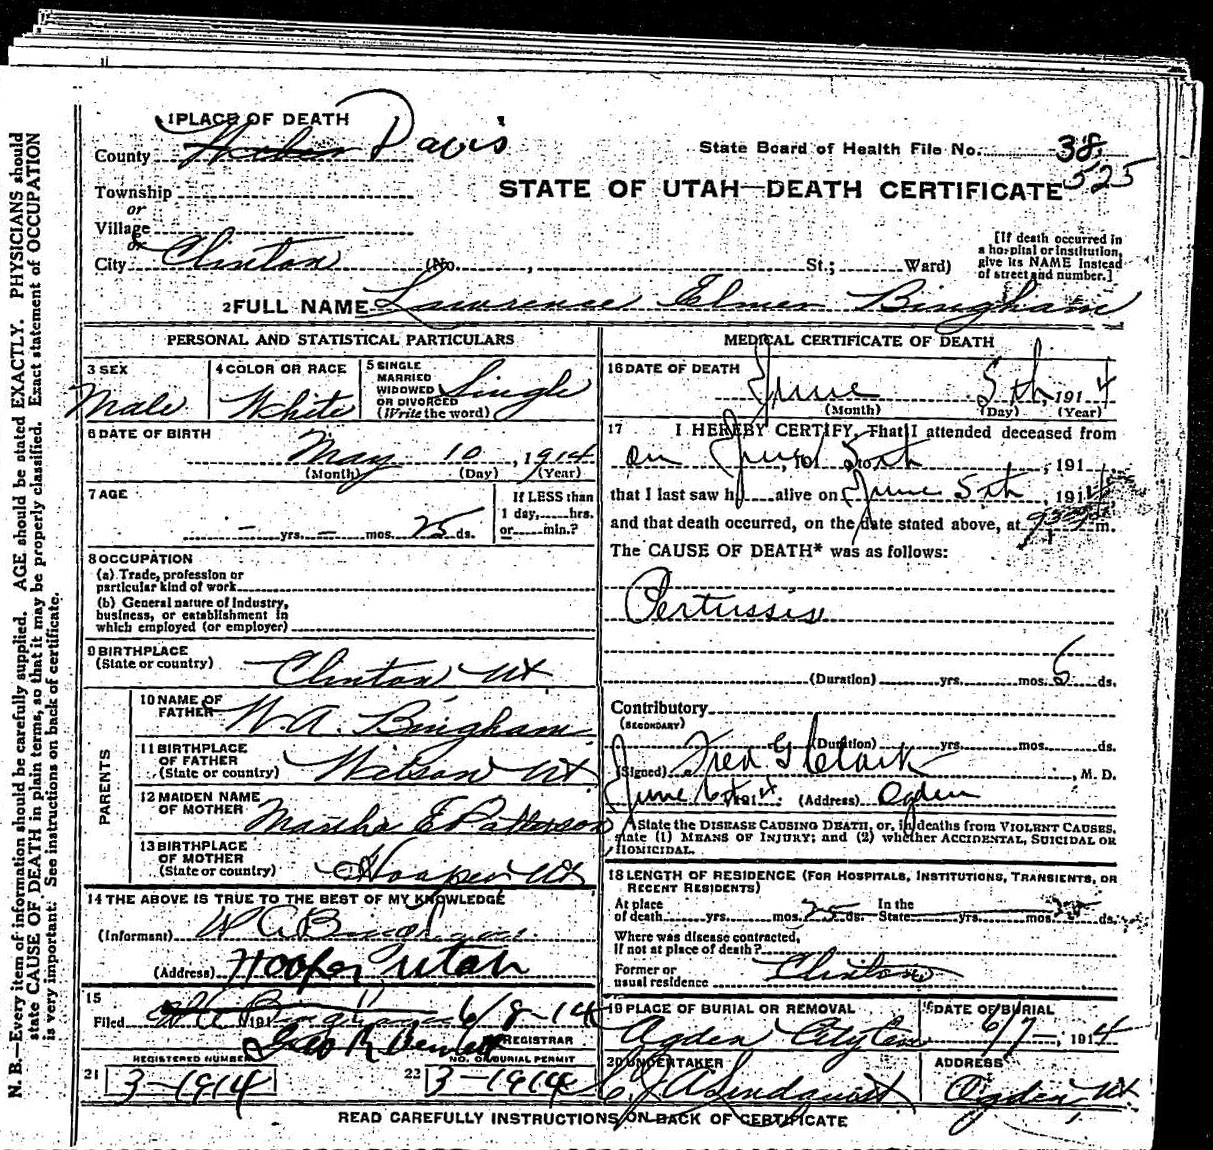 1 PLACE OF DEATH
County Weber Davis
State Board of Health File No. 38
525
Township
STATE OF UTAH—DEATH CERTIFICATE
or
Village
or
City Clinton (No. , St.; Ward)
[If death occurred in
a hospital or institution,
give its NAME instead
of street and number.]
2 FULL NAME Lawrence Elmer Bingham
PERSONAL AND STATISTICAL PARTICULARS
3 SEX
Male
4 COLOR OR RACE
White
5 SINGLE
MARRIED
WIDOWED
OR DIVORCED
(Write the word)
Single
6 DATE OF BIRTH
May 10, 1914
(Month) (Day) (Year)
7 AGE
— yrs. — mos. 25 ds.
If LESS than
1 day, hrs.
or min.?
8 OCCUPATION
(a) Trade, profession or
particular kind of work
(b) General nature of Industry,
business, or establishment in
which employed (or employer)
9 BIRTHPLACE
(State or country) Clinton Ut
PARENTS
10 NAME OF
FATHER W. A. Bingham
11 BIRTHPLACE
OF FATHER
(State or country) Wilson Ut
12 MAIDEN NAME
OF MOTHER Martha E Patterson
13 BIRTHPLACE
OF MOTHER
(State or country) Hooper Ut
14 THE ABOVE IS TRUE TO THE BEST OF MY KNOWLEDGE
(Informant) W A Bingham
(Address) Hooper Utah
15
Filed W A Bingham 191 6/8-14
Geo R
REGISTRAR
REGISTERED NUMBER
NO. OF BURIAL PERMIT
21 3-1914
22 3-1914
MEDICAL CERTIFICATE OF DEATH
16 DATE OF DEATH
June 5th, 1914
(Month) (Day) (Year)
17 I HEREBY CERTIFY, That I attended deceased from
on June 5th, 191
that I last saw h alive on June 5th, 1914
and that death occurred, on the date stated above, at m.
The CAUSE OF DEATH* was as follows:
Pertussis
(Duration) yrs. mos. 6 ds.
Contributory
(SECONDARY)
(Duration) yrs. mos. ds.
(Signed) Fred G Clark, M. D.
June 6th 1914. (Address) Ogden
*State the DISEASE CAUSING DEATH, or, in deaths from VIOLENT CAUSES,
state (1) MEANS OF INJURY; and (2) whether ACCIDENTAL, SUICIDAL OR
HOMICIDAL.
18 LENGTH OF RESIDENCE (FOR HOSPITALS, INSTITUTIONS, TRANSIENTS, OR
RECENT RESIDENTS)
At place
of death yrs. mos. 25 ds.
In the
State yrs. mos. 25 ds.
Where was disease contracted,
If not at place of death?
Former or
usual residence Clinton
19 PLACE OF BURIAL OR REMOVAL
Ogden City Cem
DATE OF BURIAL
6/7, 1914
20 UNDERTAKER
C J A Lindquist
ADDRESS
Ogden, Ut.
READ CAREFULLY INSTRUCTIONS ON BACK OF CERTIFICATE
N. B.—Every item of information should be carefully supplied. AGE should be stated EXACTLY. PHYSICIANS should
state CAUSE OF DEATH in plain terms, so that it may be properly classified. Exact statement of OCCUPATION
is very important. See instructions on back of certificate.